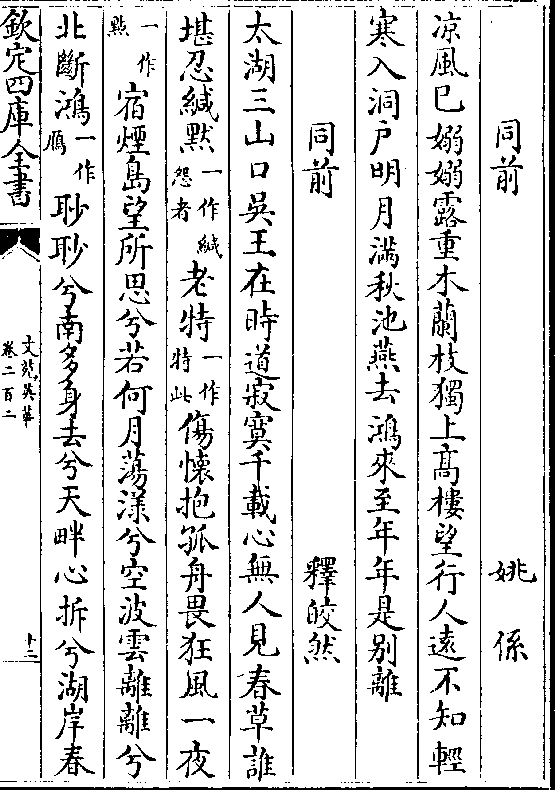 同前 姚係
凉風已嫋嫋露重木蘭枝獨上髙樓望行人遠不知輕
寒入洞户明月滿秋池燕去鴻來至年年是别離
同前 釋皎然
太湖三山口吳王在時道寂寞千載心無人見春草誰
堪忍緘黙一作緘怨者老特一作特此傷懐抱孤舟畏狂風一夜
一作點宿煙島望所思兮若何月蕩漾兮空波雲離離兮
北斷鴻一作鴈眇眇兮南多身去兮天畔心折兮湖岸春
欽定四庫全書
文苑英華
卷二百二
十三